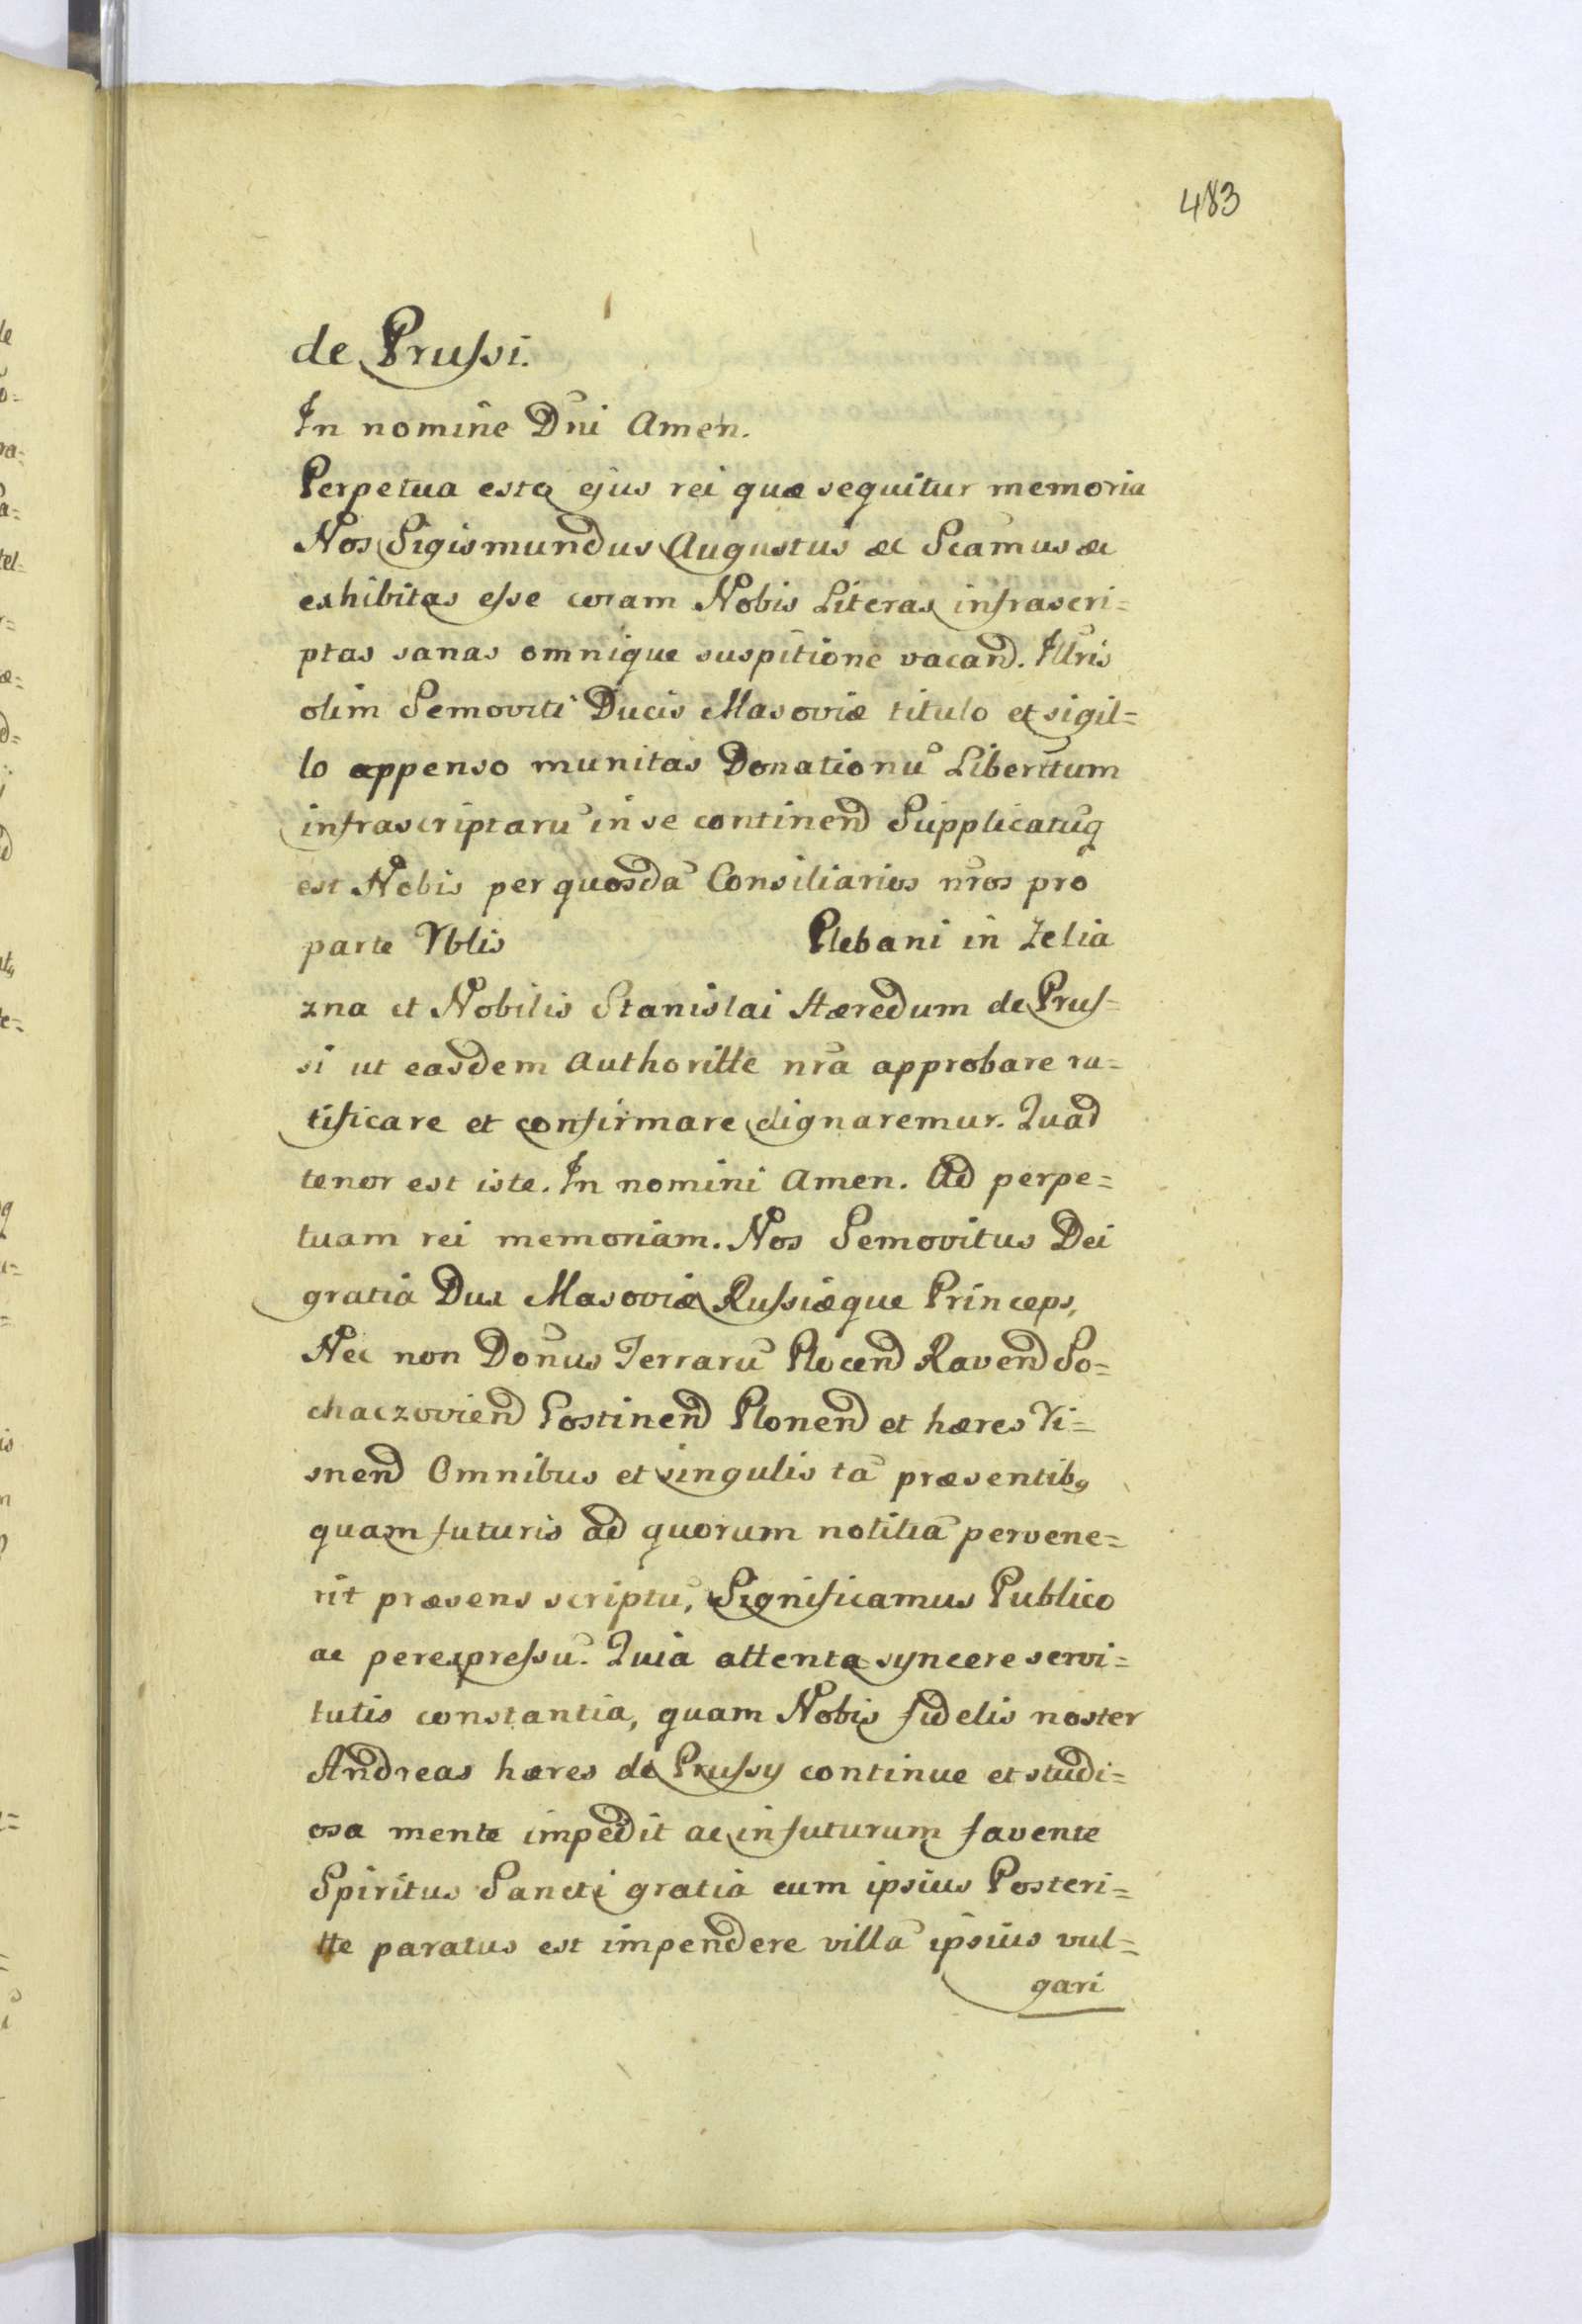 483
de Prussi.
In nomine Dni Amen.
Perpetua esto ejus rei quæ sequitur memoria
Nos Sigismundus Augustus &c Scamus &c
exhibitas esse coram Nobis Literas infrascri=
ptas sanas omnique suspitione vacand. Illris
olim Semoviti Ducis Masoviæ titulo et sigil=
lo appenso munitas Donationū Libertum
infrascriptarū in se continend Supplicatuq
est Nobis per quosdā Consiliarios nros pro
parte Vblis Plebani in Zelia
zna et Nobilis Stanislai Hæredum de Prus=
si ut easdem Authoritte nra approbare ra=
tificare et confirmare dignaremur. Quad
tenor est iste. In nomini Amen. Ad perpe=
tuam rei memoriam. Nos Semovitus Dei
gratia Dux Masoviæ Russiæque Princeps,
Nec non Donus Terrarū Plocend Ravend So=
chaczoviend Gostinend Plonend et hæres Vi=
snend Omnibus et singulis tā præsentib9
quam futuris ad quorum notitiā pervene=
rit præsens scriptū, Significamus Publico
ac perexpressū. Quia attenta syncere servi=
tutis constantia, quam Nobis fidelis noster
Andreas hæres de Prussy continue et studi=
osa mente impedit ac in futurum favente
Spiritus Sancti gratia cum ipsius Posteri=
tte paratus est impendere villā ipsius vul=
gari